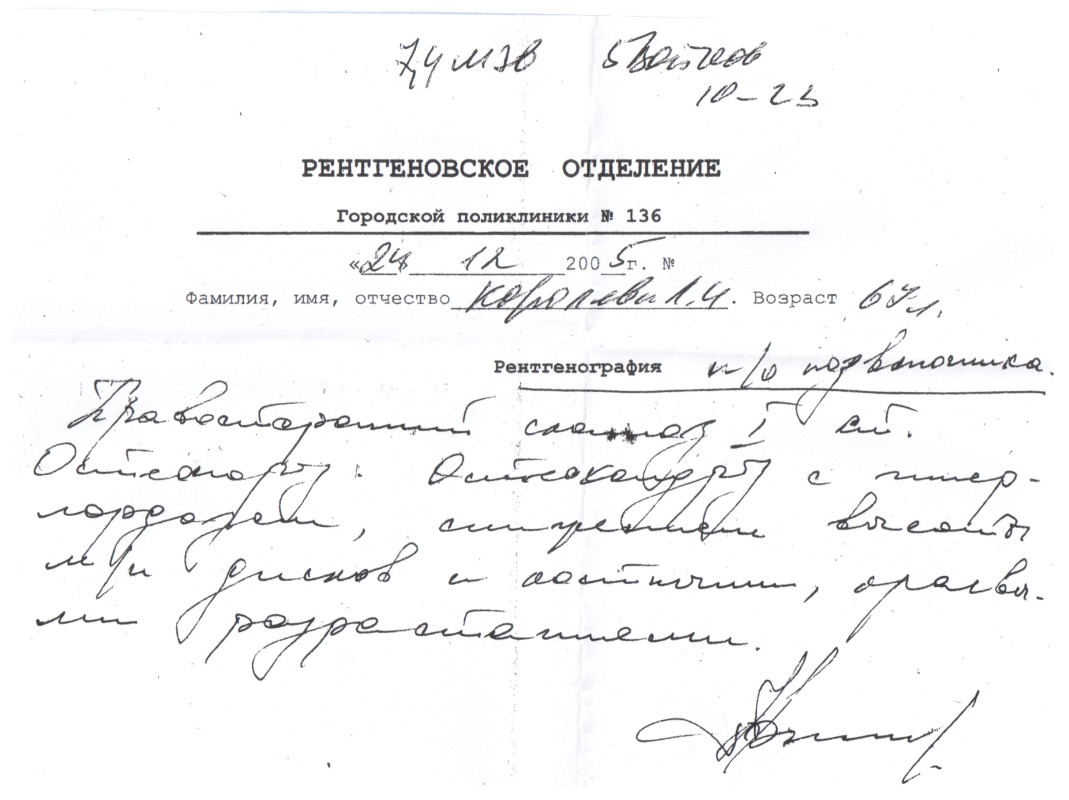 7,4 мзв
10-23
РЕНТГЕНОВСКОЕ ОТДЕЛЕНИЕ
Городской поликлиники № 136
«24» 12 2005г. №
Фамилия, имя, отчество Королева Л.И. Возраст 67л.
Рентгенография п/о позвоночника.
Правосторонний сколиоз I ст.
Остеопороз. Остеохондроз с гипер-
лордозом, снижением высоты
м/п дисков и костными, краевы-
ми разрастаниями.